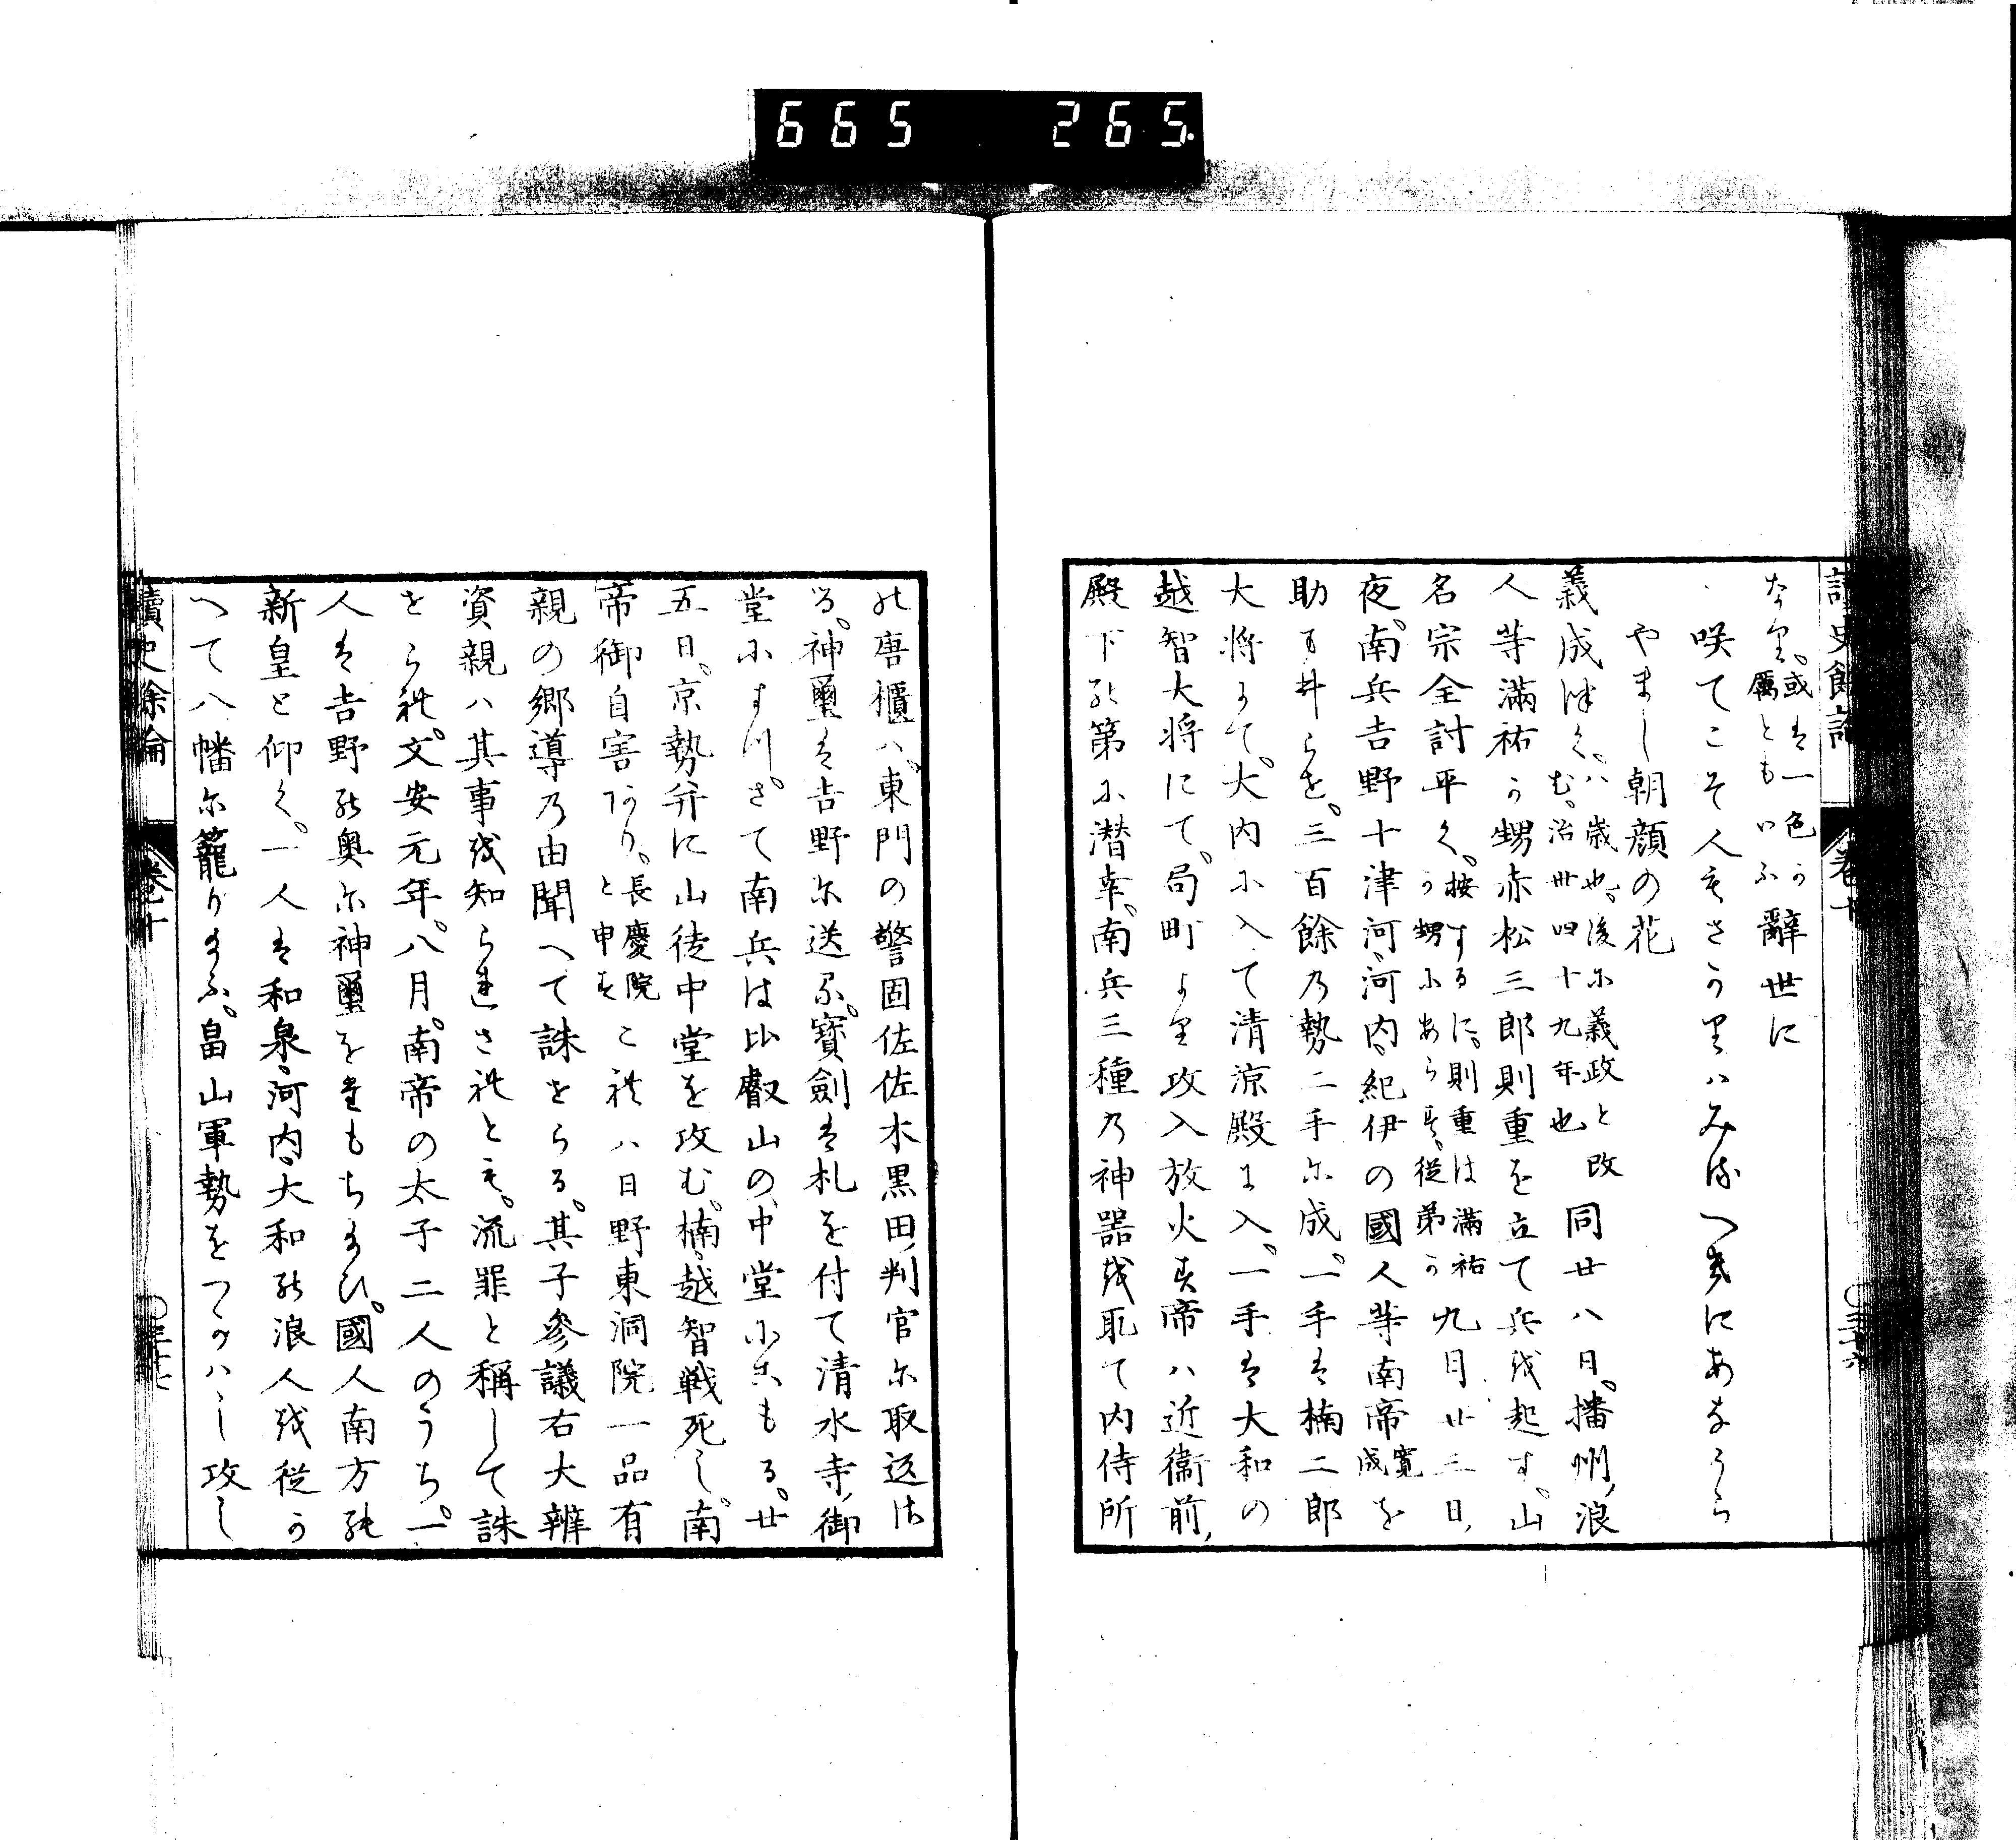 665 265.
讀史餘論 卷十
なり。或は一色か辭世に
厲ともいふ
咲てこそ人もさかりハみるへきにあなうら
やまし朝顔の花
義成継く。八歳也。後に義政と改
む。治世四十九年也 同廿八日。播州浪
人等滿祐か甥赤松三郎則重を立て兵を起す。山
名宗全討平く。按するに。則重は滿祐
か甥にあらす。従弟か 九月廿三日、
夜。南兵吉野十津河、河内、紀伊の國人等南帝寛
成を
助まいらせ。三百餘乃勢二手に成。一手は楠二郎
大将にて。大内に入て清涼殿に入。一手は大和の
越智大将にて。局町より攻入放火す帝ハ近衞前、
殿下の第に潜幸。南兵三種乃神器を取て内侍所
の唐櫃ハ、東門の警固佐佐木黒田判官に取返さ
る。神璽は吉野に送る。寶劍は札を付て清水寺、御
堂にすつ。さて南兵は比叡山の中堂にこもる。廿
五日。京勢并に山徒中堂を攻む。楠、越智戦死し。南
帝御自害あり、長慶院
と申す これハ日野東洞院一品有
親の郷導乃由聞へて誅せらる。其子參議右大辨
資親ハ其事を知られされとも。流罪と稱して誅
せられ。文安元年。八月。南帝の太子二人のうち。一
人は吉野の奥に神璽をたもち給ひ。國人南方の
新皇と仰く。一人は和泉、河内、大和の浪人を従か
へて八幡に籠り給ふ。畠山軍勢をつかハし攻し
讀史餘論 卷十